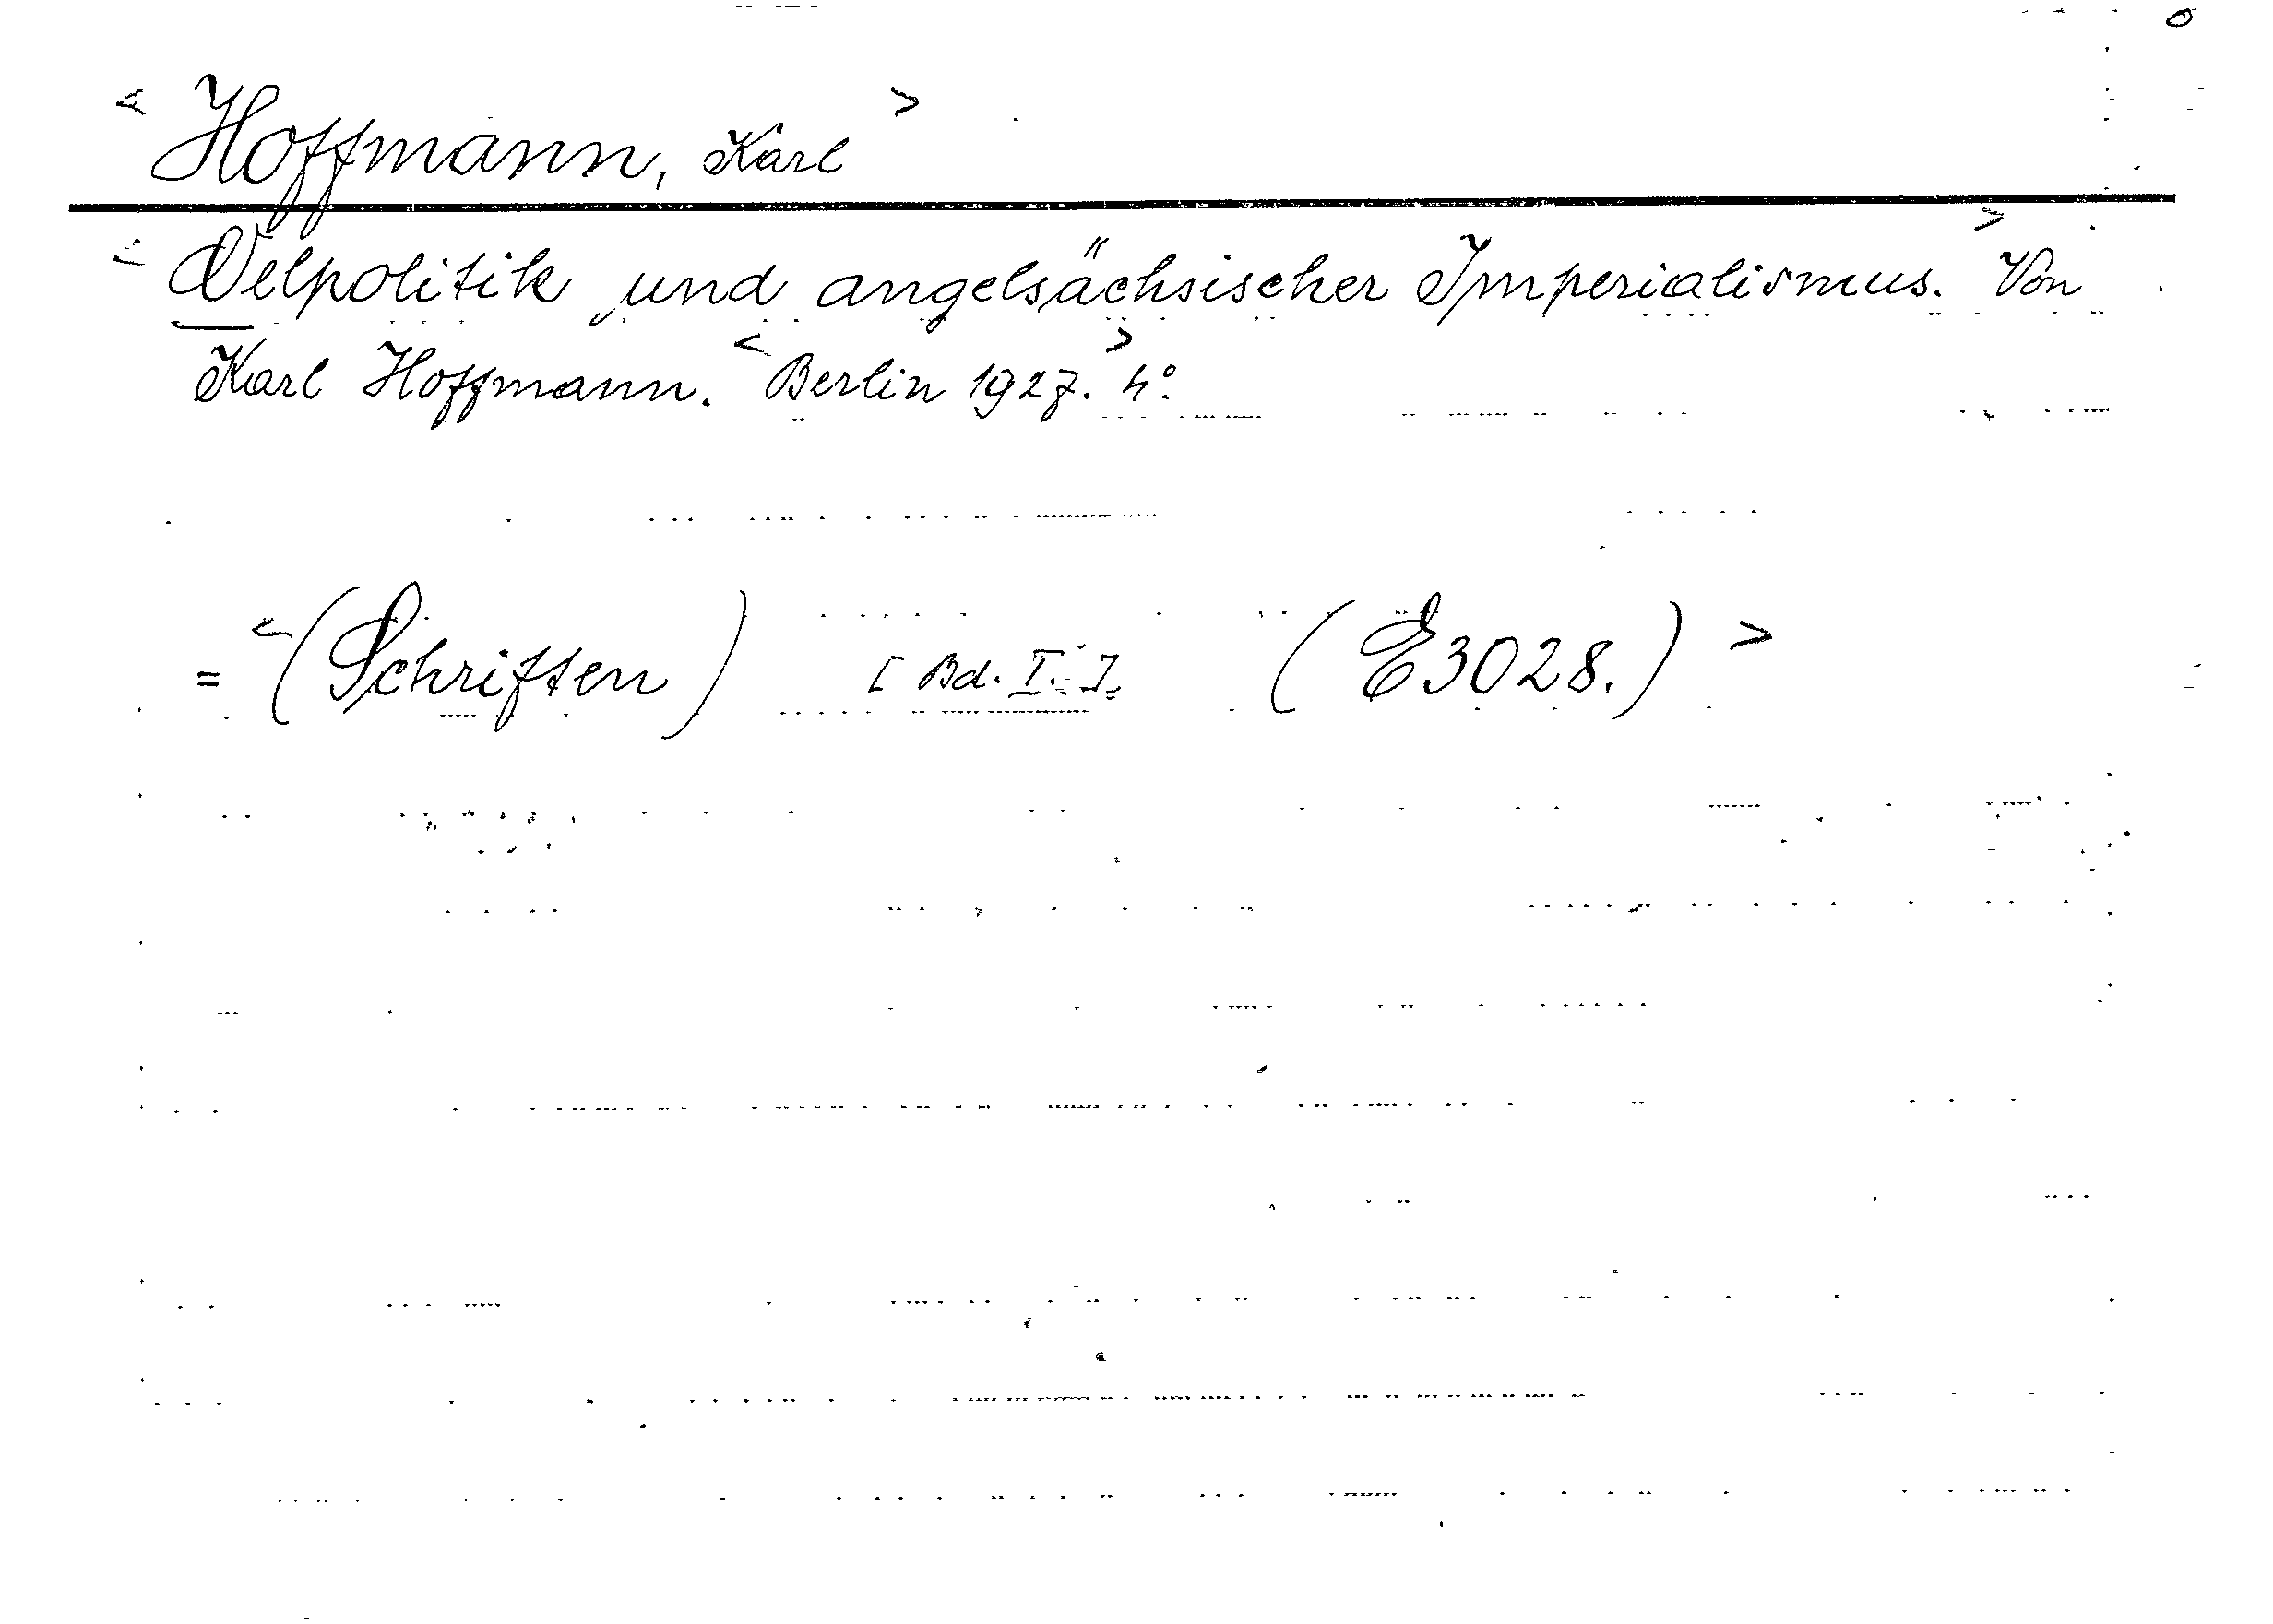 < Hoffmann, Karl >
< Oelpolitik und angelsächsischer Imperialismus. > Von
Karl Hoffmann. < Berlin 1927. > 4°.
= < (Schriften) [Bd. I.] (E3028.) >